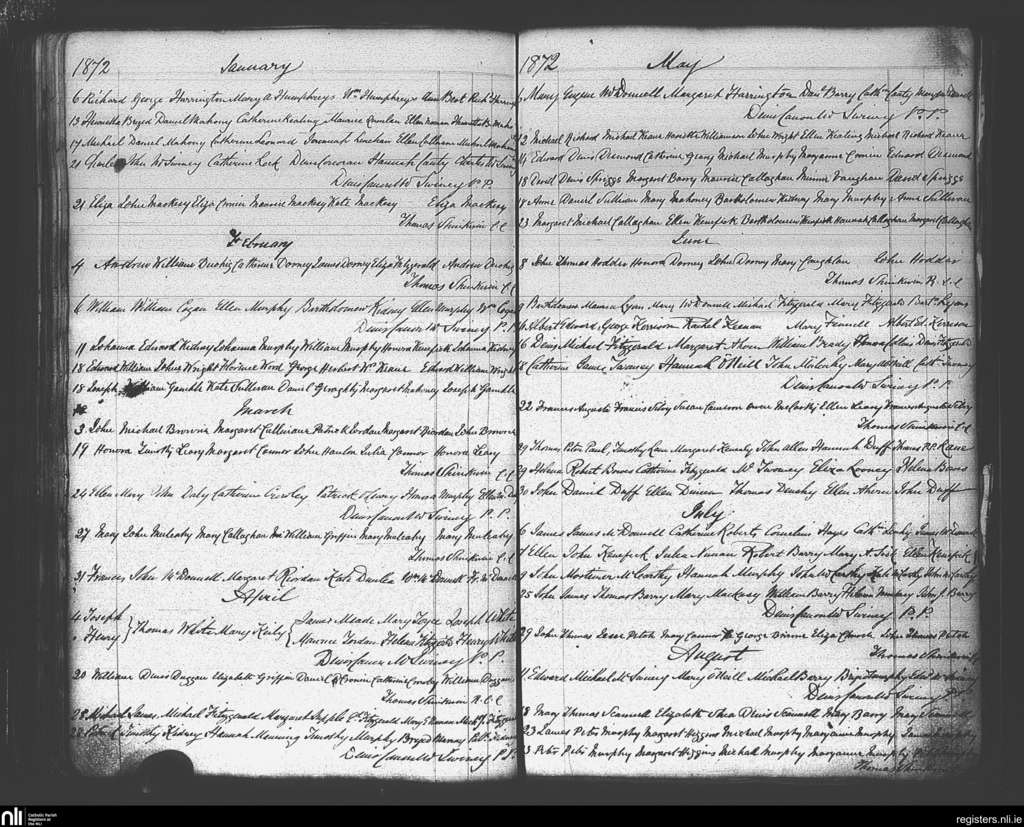 1872 January
6 Richard George Harrington Mary A Humphreys Wm Humphreys Ann Bent Rich
13 Henrietta Daniel Mahony Catherine Keating Maurice Ellen
17 Michael Daniel Mahony Catherine Leonard Jeremiah Lenehan Ellen Callinan Michael Mahony
21 John McSwiney Catherine Denis Corcoran Hannah Canty Charles McSwiney
Denis Canon McSwiney P.P.
21 Eliza John Mackesy Eliza Cronin Maurice Mackesy Kate Mackesy Eliza Mackesy
Thomas Shinkwin C.C
February
4 Andrew William Catherine Dorney James Dorney Eliza Fitzgerald Andrew
Thomas Shinkwin C.C
6 William William Cogan Ellen Murphy Bartholomew Kidney Ellen Murphy Wm Cogan
Denis Canon McSwiney P.P.
11 Johanna Edward Kidney Johanna Murphy William Murphy Honora Kenefick Johanna Kidney
18 Edward William John Wright Florence Wood George Herbert McKeane Edward William Wright
18 Joseph William Gamble Kate Sullivan Daniel Geraghty Margaret Mahony Joseph Gamble
March
3 John Michael Browne Margaret Cullinane Patrick Jordan Margaret Riordan John Browne
19 Honora Timothy Leary Margaret Connor John Hanlon Julia Connor Honora Leary
Thomas Shinkwin C.C
24 Ellen Mary John Daly Catherine Crowley Patrick Honora Murphy Ellen M Daly
Denis Canon McSwiney P.P.
27 Mary John Mulcahy Mary Callaghan William Griffin Mary Mulcahy Mary Mulcahy
Thomas Shinkwin C.C
31 Francis John McDonnell Margaret Riordan Kate Dunlea Wm McDonnell Fr. McDonnell
April
4 Joseph } Thomas White Mary Kirby { James Meade Mary Joyce Joseph White
" Henry } Maurice Jordan Helena Fitzgerald Henry White
Denis Canon McSwiney P.P.
20 William Denis Duggan Elizabeth Griffin Daniel Cronin Catherine Crowley William Duggan
Thomas Shinkwin R.C.C
28 Michael James Michael Fitzgerald Margaret Supple Fitzgerald Mary Michl J. Fitzgerald
28 Timothy Kidney Hannah Manning Timothy Murphy Kidney
Denis Canon McSwiney P.P.
1872 May
Mary Eugene McDonnell Margaret Harrington Danl Barry Cathne Canty Mary McDonnell
Denis Canon McSwiney P.P.
12 Michael Richard Michael Keane Henrietta Williamson John Wright Ellen Keating Michael Richard Keane
14 Edward Denis Desmond Catherine Geary Michael Murphy Maryanne Cronin Edward Desmond
18 David Denis Spriggs Margaret Barry Maurice Callaghan Minnie Vaughan David Spriggs
18 Anne Daniel Sullivan Mary Mahoney Bartholomew Kidney Mary Murphy Anne Sullivan
23 Margaret Michael Callaghan Ellen Kenefick Bartholomew Kenefick Hannah Callaghan Margaret Callaghan
June
8 John Thomas Hodder Honora Dorney John Dorney Mary Coughlan John Hodder
Thomas Shinkwin R.C.C
9 Bartholomew Maurice Lyons Mary McDonnell Michael Fitzgerald Mary Fitzgerald Bartw Lyons
16 Albert Edward George Kerrison Rachel Keenan Mary Finnell Albert Ed. Kerrison
16 Denis Michael Fitzgerald Margaret Ahern William Brady Collins Denis Fitzgerald
Catherine James Twomey Hannah O'Neill John Mulcahy Mary O'Neill Cathe Twomey
Denis Canon McSwiney P.P.
22 Francis Augusta Francis Silvey Susan Cameron Owen McCarthy Ellen Leary Francis Augusta Silvey
Thomas Shinkwin C.C
29 Thomas Peter Paul, Timothy Lane Margaret Kennedy John Allen Hannah Duff Thomas P.P. Lane
29 Helena Robert Bowes Catherine Fitzgerald Mc Twomey Eliza Looney Helena Bowes
30 John Daniel Duff Ellen Dineen Thomas Dunlay Ellen Ahern John Duff
July
6 James James McDonnell Catherine Roberts Cornelius Hayes Cathe James McDonnell
7 Ellen John Kenefick Julia Noonan Robert Barry Mary A. Ellen Kenefick
9 John Mortimer McCarthy Hannah Murphy John McCarthy John McCarthy
25 John James Thomas Barry Mary Mackesy William Barry Helena John J. Barry
Denis Canon McSwiney P.P.
29 John Thomas Jesse Petch Mary Connor George Browne Eliza Church John Thomas Petch
Thomas Shinkwin C.C
August
11 Edward Michael McSwiney Mary O'Neill Michael Barry Murphy
Denis Canon McSwiney P.P.
18 Mary Thomas Scannell Elizabeth Shea Denis Scannell Mary Barry Mary Scannell
23 James Peter Murphy Margaret Higgins Michael Murphy Maryanne Murphy James Murphy
23 Peter Peter Murphy Margaret Higgins Michael Murphy Maryanne Murphy
Thomas Shinkwin
nli Catholic Parish
Registers at
the NLI
registers.nli.ie